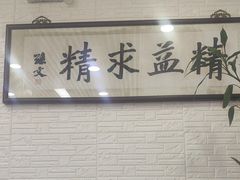 精益求精
孫文